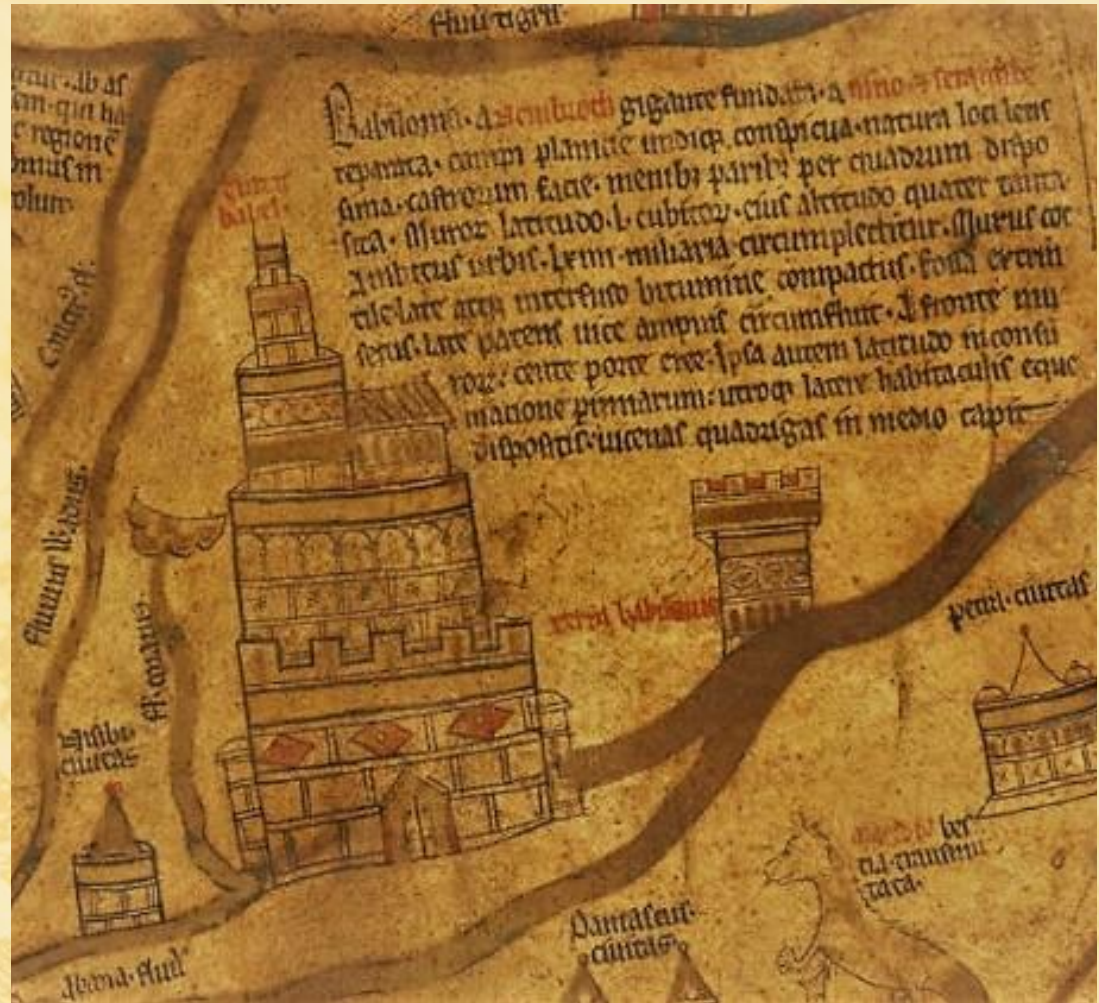 fluui' tigris
Babilonia · a Nembroth gigante fundata · a nino ⁊ semirame
reparata · campi planicie undiqꝫ conspicua · natura loci letis
sima · castrorum facie · menibꝫ paribꝫ per quadrum dispo
sita · Muroꝝ latitudo · l · cubitoꝝ · eius altitudo quater tanta ·
Ambitus urbis · lxiiii · miliaria circumplectitur · Murus coc
tile late atqꝫ interfuso bitumine compactus · fossa extrin
secus · late patens uice ampnis circumfluit · A fronte mu
roꝝ : cente porte eree · Ipsa autem latitudo in consu
matione pinnarum : utroqꝫ latere habitaculis eque
dispositis · uicenas quadrigas in medio capit
ab as
em · qui ha
regione
babel ·
fluuius
fl'
ciuitas
abana · fluui'
Damascus ·
ciuitas ·
ciuitas
bes
tia transmu
tata ·